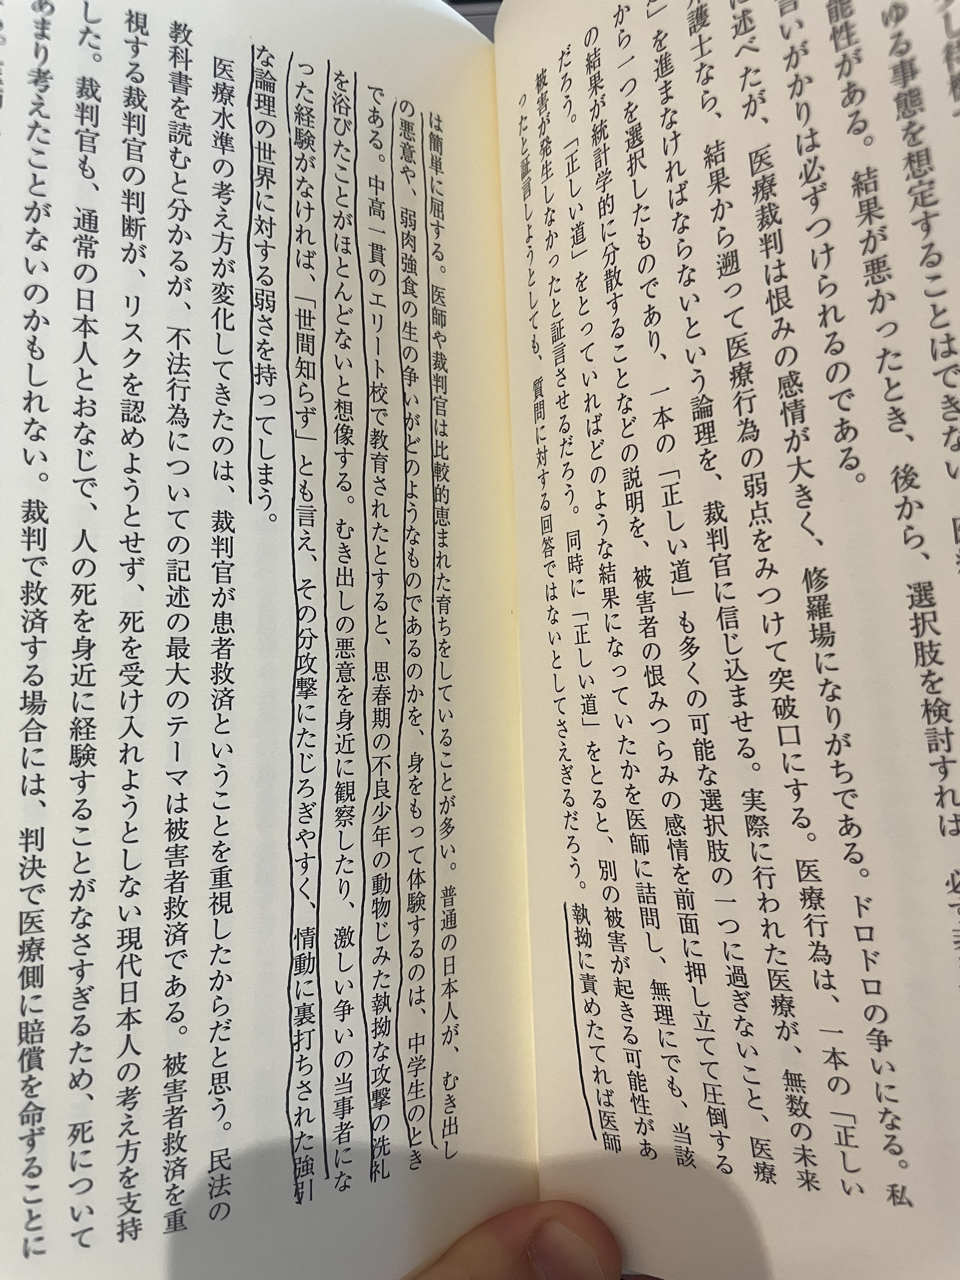 ゆる事態を想定することはできない
能性がある。結果が悪かったとき、後から、選択肢を検討すれば
言いがかりは必ずつけられるのである。
に述べたが、医療裁判は恨みの感情が大きく、修羅場になりがちである。ドロドロの争いになる。私
護士なら、結果から遡って医療行為の弱点をみつけて突破口にする。医療行為は、一本の「正しい
」を進まなければならないという論理を、裁判官に信じ込ませる。実際に行われた医療が、無数の未来
から一つを選択したものであり、一本の「正しい道」も多くの可能な選択肢の一つに過ぎないこと、医療
の結果が統計学的に分散することなどの説明を、被害者の恨みつらみの感情を前面に押し立てて圧倒する
だろう。「正しい道」をとっていればどのような結果になっていたかを医師に詰問し、無理にでも、当該
被害が発生しなかったと証言させるだろう。同時に「正しい道」をとると、別の被害が起きる可能性があ
ったと証言しようとしても、質問に対する回答ではないとしてさえぎるだろう。執拗に責めたてれば医師
は簡単に屈する。医師や裁判官は比較的恵まれた育ちをしていることが多い。普通の日本人が、むき出し
の悪意や、弱肉強食の生の争いがどのようなものであるのかを、身をもって体験するのは、中学生のとき
である。中高一貫のエリート校で教育されたとすると、思春期の不良少年の動物じみた執拗な攻撃の洗礼
を浴びたことがほとんどないと想像する。むき出しの悪意を身近に観察したり、激しい争いの当事者にな
った経験がなければ、「世間知らず」とも言え、その分攻撃にたじろぎやすく、情動に裏打ちされた強引
な論理の世界に対する弱さを持ってしまう。
医療水準の考え方が変化してきたのは、裁判官が患者救済ということを重視したからだと思う。民法の
教科書を読むと分かるが、不法行為についての記述の最大のテーマは被害者救済である。被害者救済を重
視する裁判官の判断が、リスクを認めようとせず、死を受け入れようとしない現代日本人の考え方を支持
した。裁判官も、通常の日本人とおなじで、人の死を身近に経験することがなさすぎるため、死について
あまり考えたことがないのかもしれない。裁判で救済する場合には、判決で医療側に賠償を命ずることに